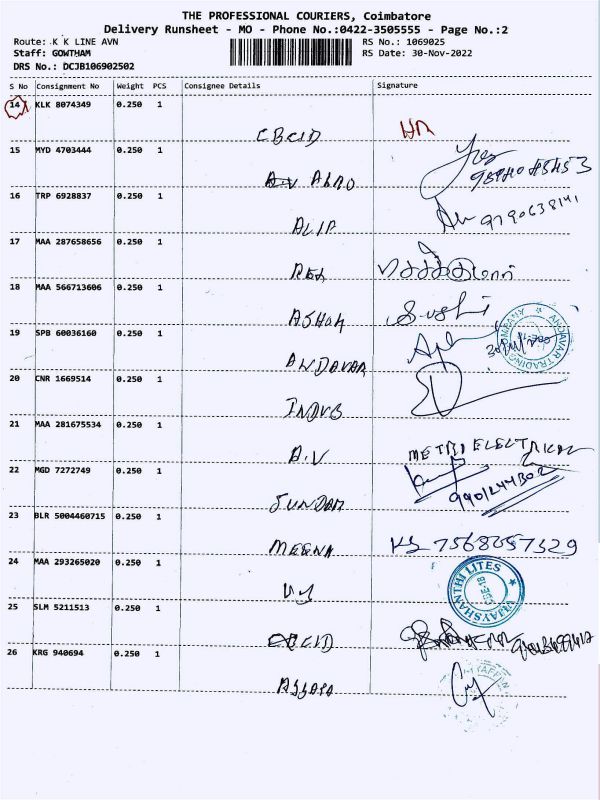 THE PROFESSIONAL COURIERS, Coimbatore
Delivery Runsheet - MO - Phone No.:0422-3505555 - Page No.:2
Route: K K LINE AVN
RS No.: 1069025
Staff: GOWTHAM
RS Date: 30-Nov-2022
DRS No.: DCJB106902502
S No Consignment No Weight PCS Consignee Details Signature
14 KLK 8074349 0.250 1
CBCID
15 MYD 4703444 0.250 1
16 TRP 6928837 0.250 1
9790638141
17 MAA 287658656 0.250 1
18 MAA 566713606 0.250 1
ASHOK Sushi
19 SPB 60036160 0.250 1
ANDAVAR TRADING COMPANY
ANDAVAR
20 CNR 1669514 0.250 1
INDUS
21 MAA 281675534 0.250 1
A.V METRO ELECTRICAL
22 MGD 7272749 0.250 1
SUNDAM
23 BLR 5004460715 0.250 1
MEENA
24 MAA 293265020 0.250 1
VIJAYSHANTHI LITES
CBE-18
25 SLM 5211513 0.250 1
CBCID
26 KRG 940694 0.250 1